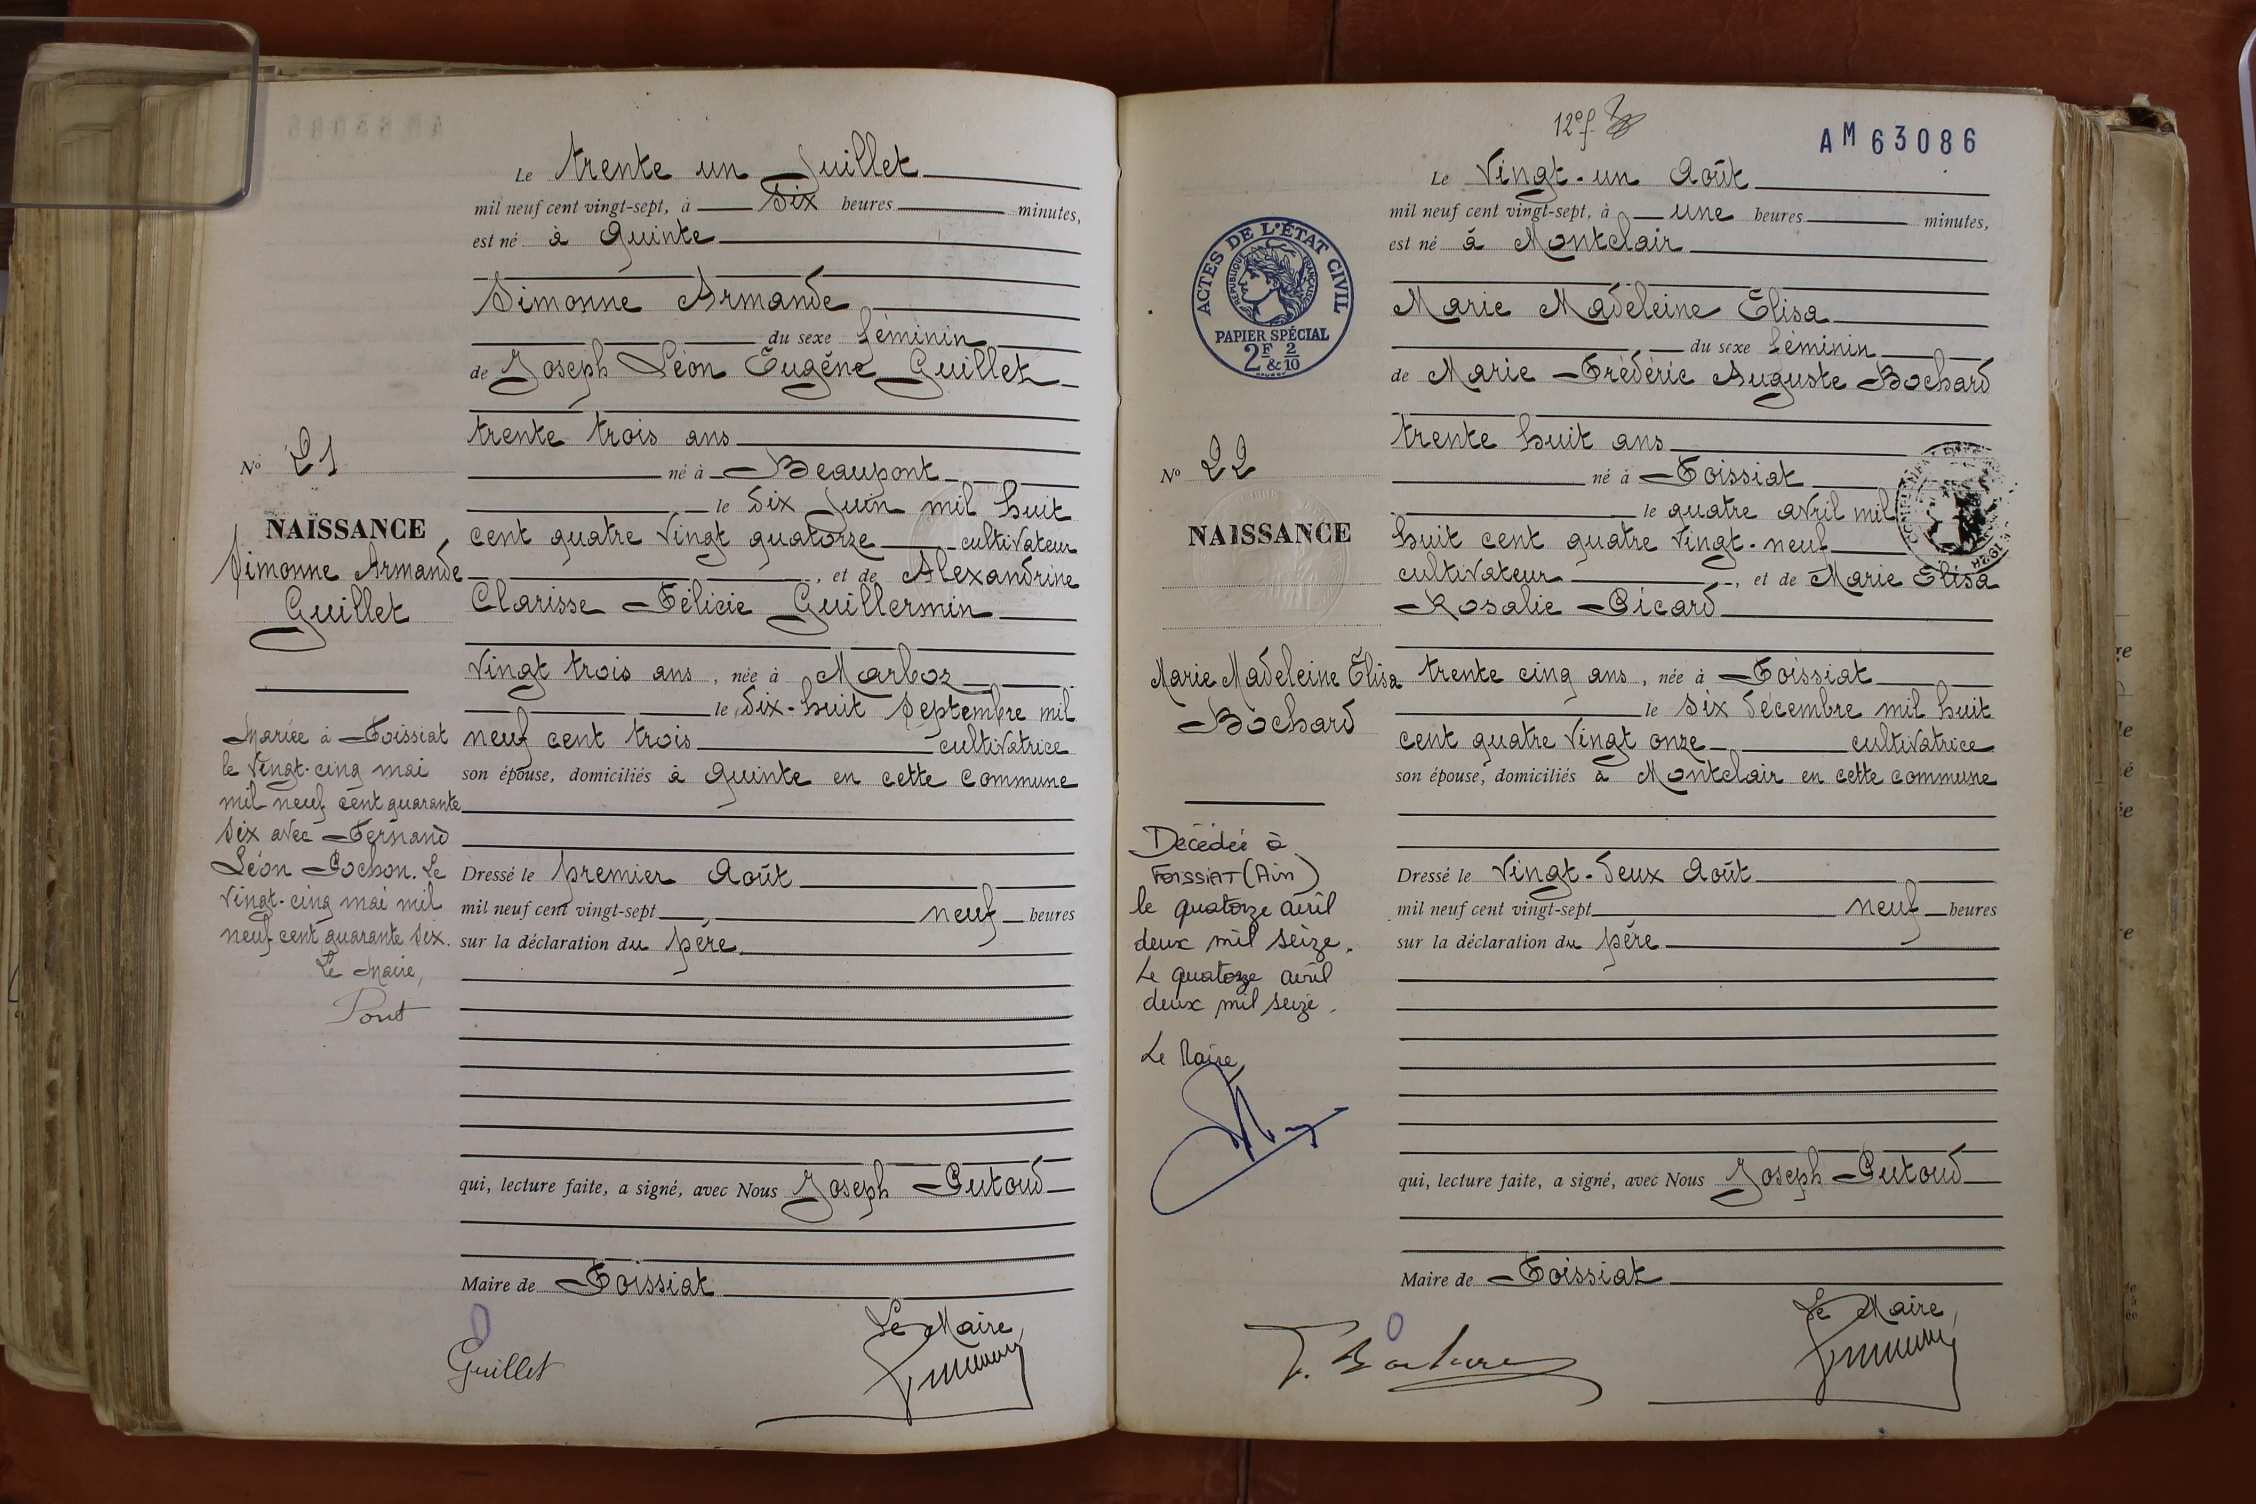 Le trente un Juillet
mil neuf cent vingt-sept, à six heures minutes,
est né à Quinte
Simonne Armande
du sexe féminin
de Joseph Léon Eugène Guillet
trente trois ans
né à Beaupont
le dix Juin mil huit
cent quatre vingt quatorze cultivateur
, et de Alexandrine
Clarisse Félicie Guillermin
vingt trois ans, née à Marboz
le dix-huit Septembre mil
neuf cent trois cultivatrice
son épouse, domiciliés à Quinte en cette commune
Dressé le premier Août
mil neuf cent vingt-sept neuf heures
sur la déclaration du père
qui, lecture faite, a signé, avec Nous Joseph Putoud
Maire de Foissiat
Le Maire,
Guillet
No 21
NAISSANCE
Simonne Armande
Guillet
Mariée à Foissiat
le vingt-cinq mai
mil neuf cent quarante
six avec Fernand
Léon Pochon. Le
vingt-cinq mai mil
neuf cent quarante six.
Le Maire,
Pont
12e f.
AM 63086
Le Vingt-un Août
mil neuf cent vingt-sept, à une heures minutes,
est né à Montclair
Marie Madeleine Elisa
du sexe féminin
de Marie Frédéric Auguste Bochard
trente huit ans
né à Foissiat
le quatre avril mil
huit cent quatre vingt-neuf
cultivateur , et de Marie Elisa
Rosalie Picard
trente cinq ans, née à Foissiat
le six décembre mil huit
cent quatre vingt onze cultivatrice
son épouse, domiciliés à Montclair en cette commune
Dressé le vingt-deux Août
mil neuf cent vingt-sept neuf heures
sur la déclaration du père
qui, lecture faite, a signé, avec Nous Joseph Putoud
Maire de Foissiat
Le Maire,
ACTES DE L'ÉTAT CIVIL
RÉPUBLIQUE FRANÇAISE
PAPIER SPÉCIAL
2F & 2/10
No 22
NAISSANCE
Marie Madeleine Elisa
Bochard
Décédée à
FOISSIAT (Ain)
le quatorze avril
deux mil seize.
Le quatorze avril
deux mil seize.
Le Maire,